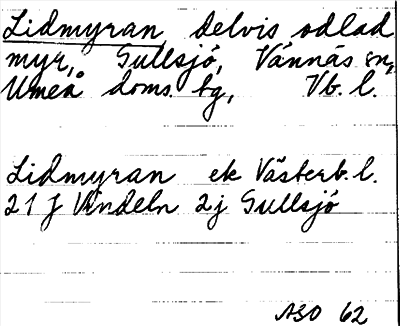 Lidmyran, delvis odlad
myr, Gullsjö, Vännäs sn,
Umeå doms. bg, Vb. l.
Lidmyran ek Västerb. l.
21 f Vindeln 2j Gullsjö
ASO 62